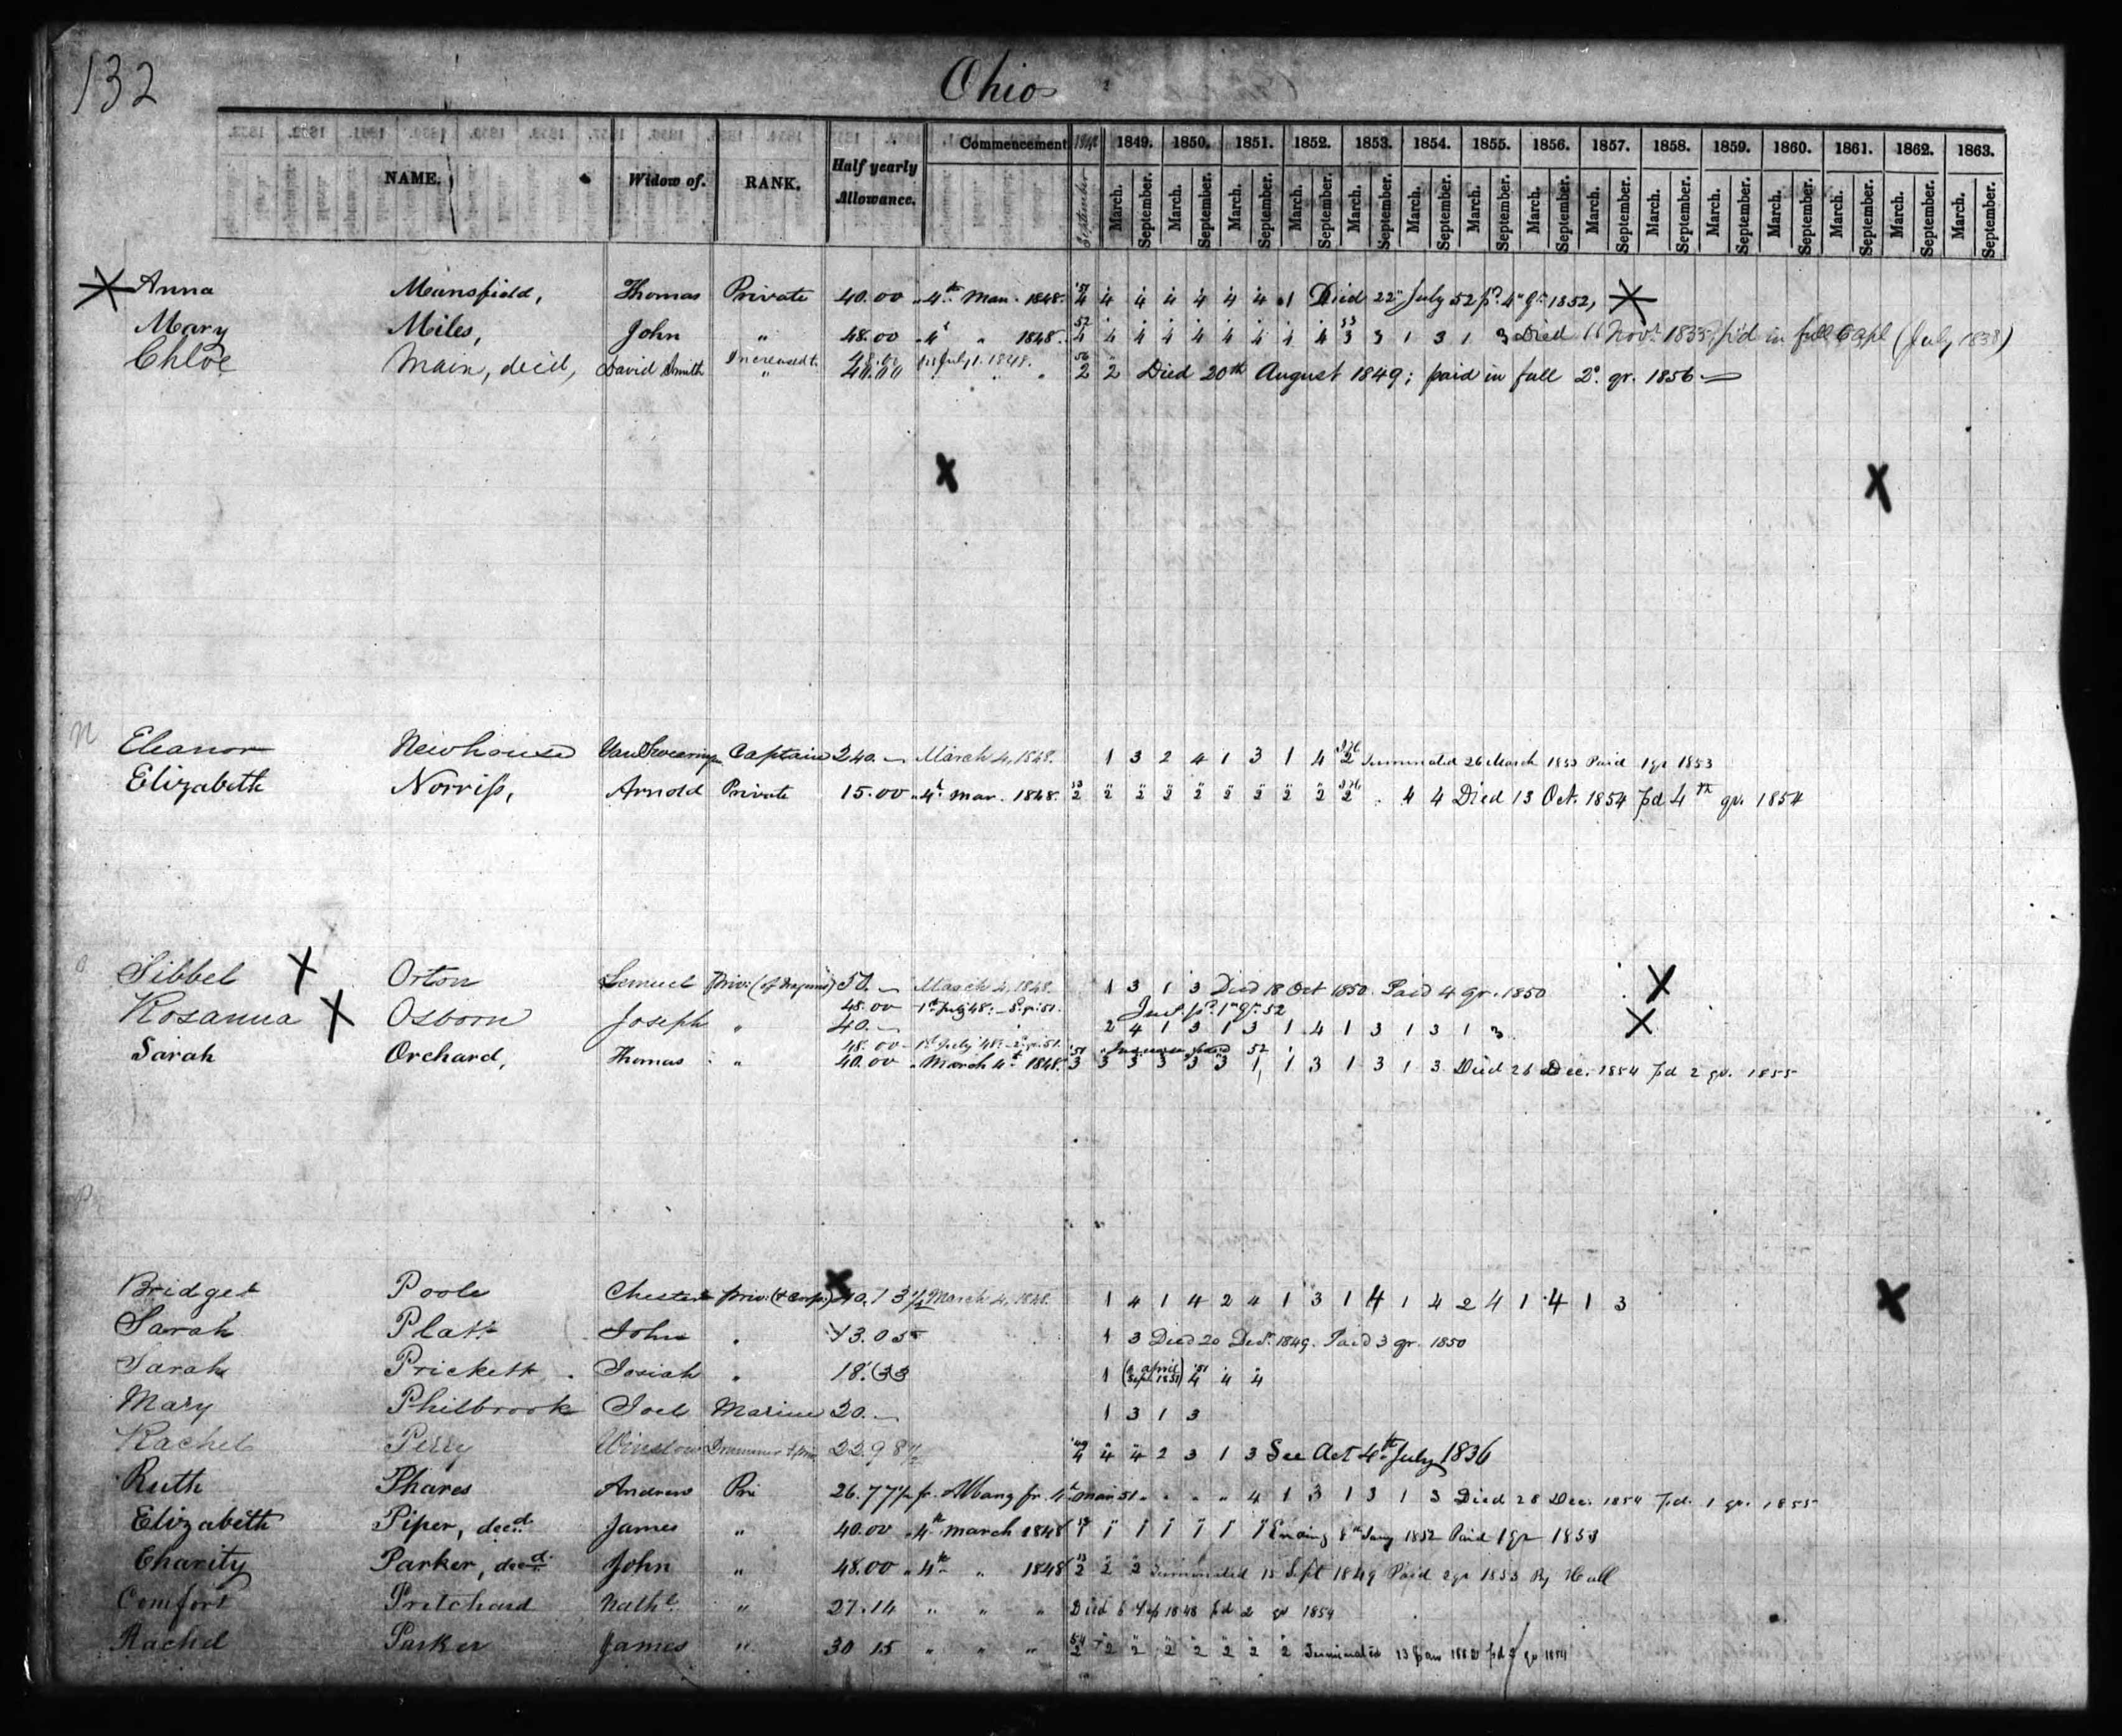 132
Ohio
NAME. Widow of. RANK. Half yearly Allowance. Commencement 1848 September 1849. 1850. 1851. 1852. 1853. 1854. 1855. 1856. 1857. 1858. 1859. 1860. 1861. 1862. 1863.
March. September. March. September. March. September. March. September. March. September. March. September. March. September. March. September. March. September. March. September. March. September. March. September. March. September. March. September. March. September.
Anna Mansfield, Thomas Private 40.00 4th Mar. 1848. '51 4 4 4 4 4 4 4 1 Died 22" July 52 pd. 4" qr. 1852,
Mary Miles, John " 48.00 " 4th " 1848. 52 4 4 4 4 4 4 4 4 4 53 3 3 1 3 1 3 Died Novr. p'd in full (July 1838)
Increased to 48.00 fr July 1. 1848.
Chloe Main, dec'd, David Smith " 40.00 " " " 56 2 2 Died 20th August 1849; paid in full 2d. qr. 1856
N
Eleanor Newhouse Captain 240. March 4, 1848. 1 3 2 4 1 3 1 4 2 Terminated 26 March 1853 Paid 1 qr 1853
Elizabeth Norriss, Arnold Private 15.00 4th Mar. 1848. 53 2 2 2 2 2 2 2 2 2 2 4 4 Died 13 Oct. 1854 pd 4th qr. 1854
O
Sibbel X Orton Lemuel 50. March 4, 1848. 1 3 1 3 Died 18 Oct 1850. Paid 4 qr. 1850 X
48.00 1st July 48. Inct. pd. 1" qr. 52
Rosanna X Osborn Joseph " 40. 2 4 1 3 1 3 1 4 1 3 1 3 1 3 X
48.00 1st July 48 Increase paid 52
Sarah Orchard, Thomas " 40.00 March 4th 1848. '51 3 3 3 3 3 3 1 1 3 1 3 1 3 Died 26 Dec. 1854 pd 2 qr. 1855
P
Bridget Poole Chester March 4, 1848. 1 4 1 4 2 4 1 3 1 4 1 4 2 4 1 4 1 3
Sarah Platt John " 1 3 Died 20 1849. Paid 3 qr. 1850
Sarah Prickett Josiah " 18.33 1 '51 4 4 4
Mary Philbrook Joel Marine 20. 1 3 1 3
Rachel Perry Winslow Drummer 22.98 '49 4 4 4 2 3 1 3 See Act 4th July 1836
Ruth Phares Andrew Pri 26.77 fr. Albany fr. 4th Mar 51 " " " " 4 1 3 1 3 1 3 Died 28 Dec. 1854 Pd. 1 qr. 1855
Elizabeth Piper, decd. James " 40.00 4th March 1848 1 1 1 1 1 1 1 Ending 8th Jany 1852 Paid 1 qr 1853
Charity Parker, decd. John " 48.00 " 4th " 1848 53 2 2 2 Terminated 15 Sept 1849 Paid 2 qr 1853 By Hall
Comfort Pritchard Nathl. " 27.14 " " " Died 6 Sep 1848 pd 2 qr 1854
Rachel Parker James " 30 15 " " " 54 2 2 2 2 2 2 2 2 Terminated 13 Jan